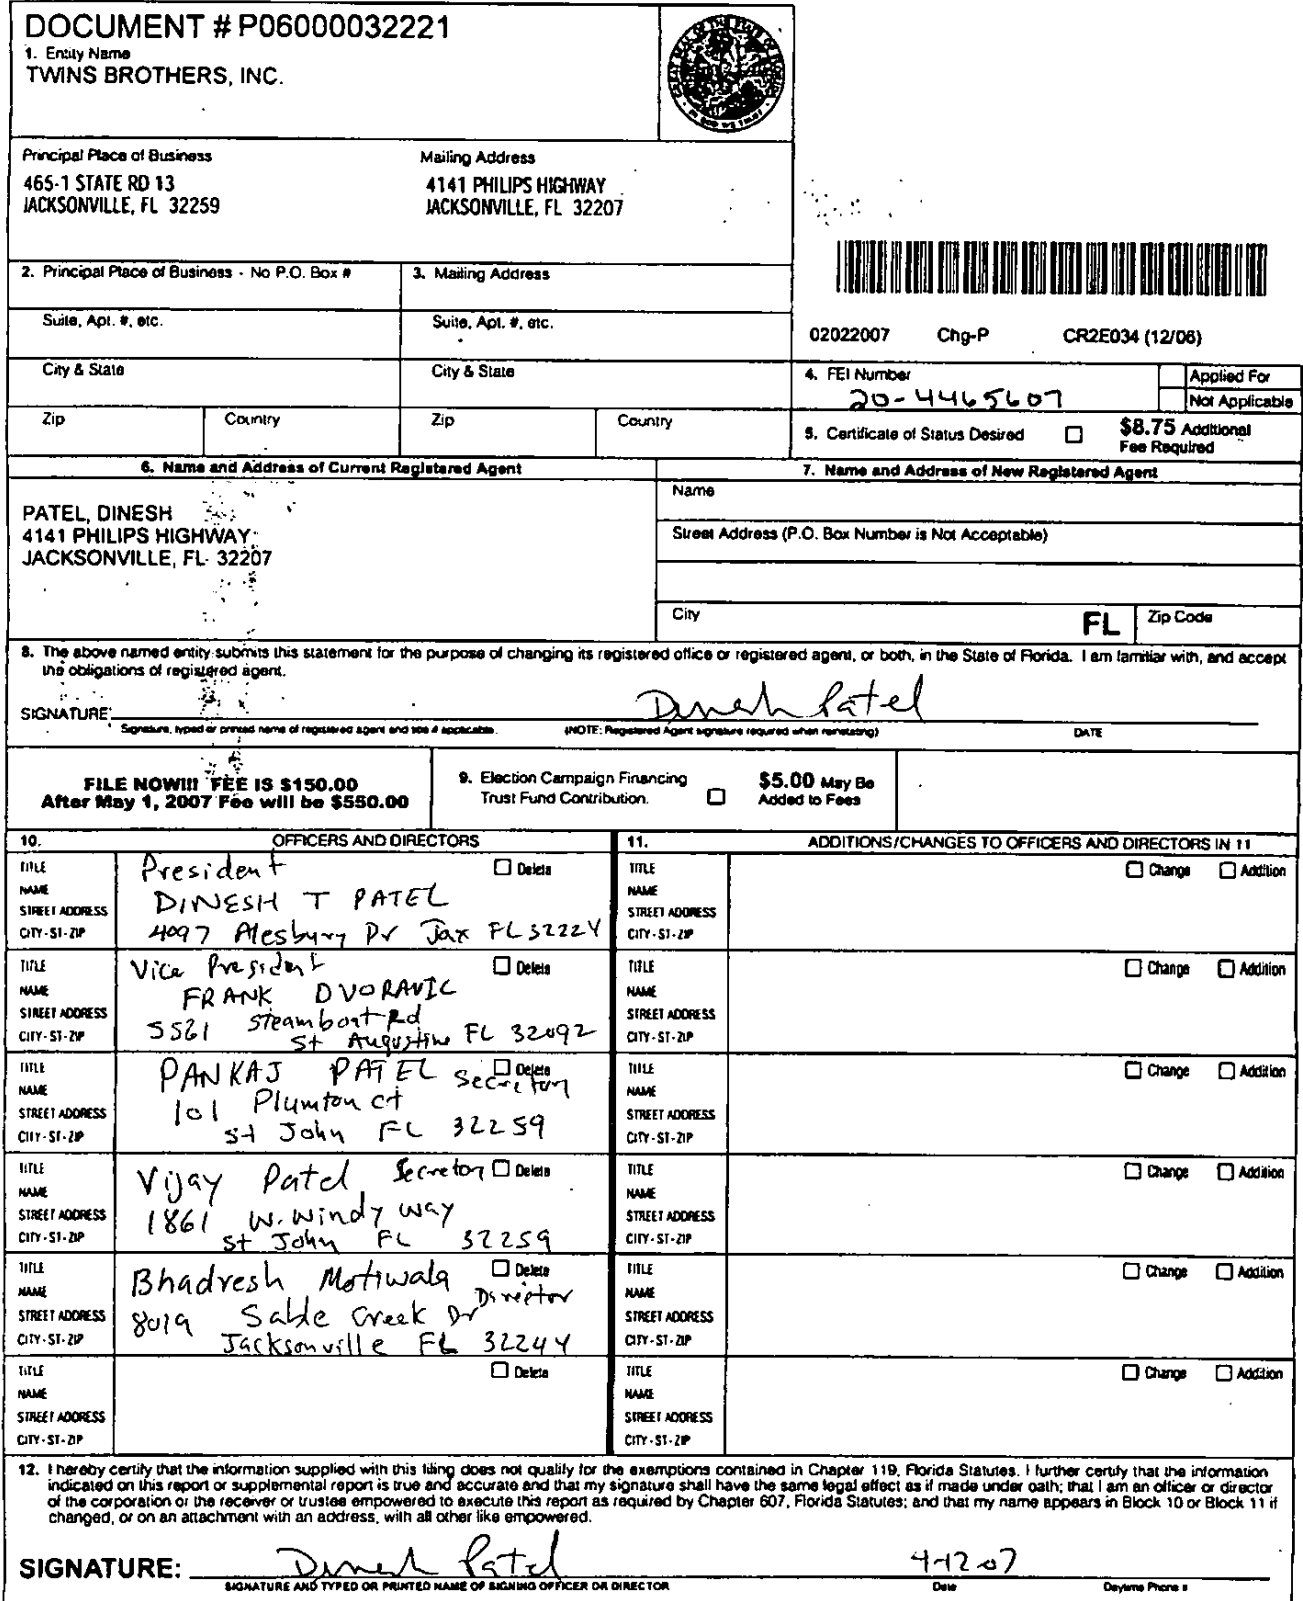 DOCUMENT # P06000032221
1. Entity Name
TWINS BROTHERS, INC.
Principal Place of Business
465-1 STATE RD 13
JACKSONVILLE, FL 32259
Mailing Address
4141 PHILIPS HIGHWAY
JACKSONVILLE, FL 32207
2. Principal Place of Business - No P.O. Box #
3. Mailing Address
Suite, Apt. #, etc.
Suite, Apt. #, etc.
City & State
City & State
Zip
Country
Zip
Country
02022007 Chg-P CR2E034 (12/06)
4. FEI Number
20-4465607
Applied For
Not Applicable
5. Certificate of Status Desired
$8.75 Additional
Fee Required
6. Name and Address of Current Registered Agent
PATEL, DINESH
4141 PHILIPS HIGHWAY
JACKSONVILLE, FL 32207
7. Name and Address of New Registered Agent
Name
Street Address (P.O. Box Number is Not Acceptable)
City
FL
Zip Code
8. The above named entity submits this statement for the purpose of changing its registered office or registered agent, or both, in the State of Florida. I am familiar with, and accept
the obligations of registered agent.
SIGNATURE Dinesh Patel
Signature, typed or printed name of registered agent and title if applicable.
(NOTE: Registered Agent signature required when reinstating)
DATE
FILE NOW!!! FEE IS $150.00
After May 1, 2007 Fee will be $550.00
9. Election Campaign Financing
Trust Fund Contribution.
$5.00 May Be
Added to Fees
10. OFFICERS AND DIRECTORS
11. ADDITIONS/CHANGES TO OFFICERS AND DIRECTORS IN 11
TITLE President Delete
NAME DINESH T PATEL
STREET ADDRESS
CITY-ST-ZIP 4097 Alesbury Dr Jax FL 32224
TITLE Change Addition
NAME
STREET ADDRESS
CITY-ST-ZIP
TITLE Vice President Delete
NAME FRANK DVORAVIC
STREET ADDRESS 5521 Steamboat Rd
CITY-ST-ZIP St Augustine FL 32092
TITLE Change Addition
NAME
STREET ADDRESS
CITY-ST-ZIP
TITLE PANKAJ PATEL Secretory Delete
NAME
STREET ADDRESS 101 Plumton ct
CITY-ST-ZIP St John FL 32259
TITLE Change Addition
NAME
STREET ADDRESS
CITY-ST-ZIP
TITLE Vijay Patel Secretory Delete
NAME
STREET ADDRESS 1861 W. Windy way
CITY-ST-ZIP St John FL 32259
TITLE Change Addition
NAME
STREET ADDRESS
CITY-ST-ZIP
TITLE Bhadresh Motiwala Delete
NAME Director
STREET ADDRESS 8019 Sable Creek Dr
CITY-ST-ZIP Jacksonville FL 32244
TITLE Change Addition
NAME
STREET ADDRESS
CITY-ST-ZIP
TITLE Delete
NAME
STREET ADDRESS
CITY-ST-ZIP
TITLE Change Addition
NAME
STREET ADDRESS
CITY-ST-ZIP
12. I hereby certify that the information supplied with this filing does not qualify for the exemptions contained in Chapter 119, Florida Statutes. I further certify that the information
indicated on this report or supplemental report is true and accurate and that my signature shall have the same legal effect as if made under oath; that I am an officer or director
of the corporation or the receiver or trustee empowered to execute this report as required by Chapter 607, Florida Statutes; and that my name appears in Block 10 or Block 11 if
changed, or on an attachment with an address, with all other like empowered.
SIGNATURE: Dinesh Patel 4-12-07
SIGNATURE AND TYPED OR PRINTED NAME OF SIGNING OFFICER OR DIRECTOR Date Daytime Phone #